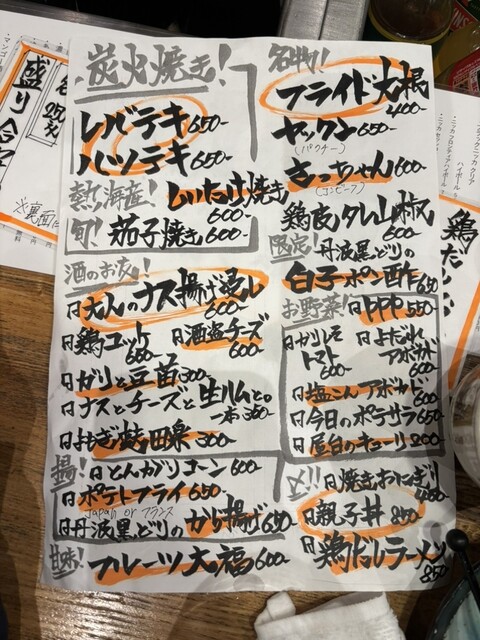 炭火焼き!
レバテキ 650-
ハツテキ 650-
熱海産! しいたけ焼き 600-
旬! 茄子焼き 600-
酒のお友!
大人のナス揚げ浸し 600-
鶏ユッケ 600-
酒盗チーズ 600-
ガリと豆苗 300-
ナスとチーズと生ハムとの 一本 360-
よもぎ麩田楽 300-
揚! とんがりコーン 600-
ポテトフライ 650-
Japan or フランス
丹波黒どりの から揚げ 650-
甘味! フルーツ大福 600-
名物!
フライド大根 400-
ヤックン 650-
(パクチー)
きっちゃん 600-
(コンビーフ)
鶏皮タレ山椒 600-
限定! 丹波黒どりの
白子ポン酢 650
お野菜! PPP 550-
ガリしそトマト 600-
よだれアボカド 600
塩こんアボカド 600
今日のポテサラ 650
屋台のキューリ 200-
〆!! 焼きおにぎり 400-
親子丼 850-
鶏だしラーメン 850-
盛り合
250
※裏面に
・ニッカ クリア
ハイボール
・ニッカセッ
鶏だし